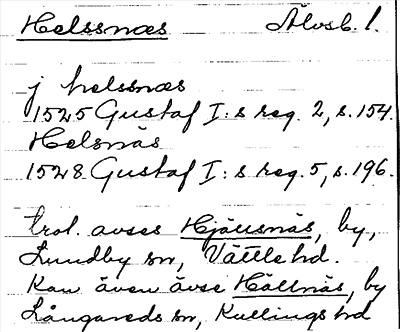 Helssnæs Älvsb. l.
j helssnæs
1525 Gustaf I:s reg. 2, s. 154.
Helsnäs
1528 Gustaf I:s reg. 5, s. 196.
trol. avses Hjällsnäs, by,
Lundby sn, Vättle hd.
Kan även avse Hällnäs, by
Långareds sn, Kullings hd